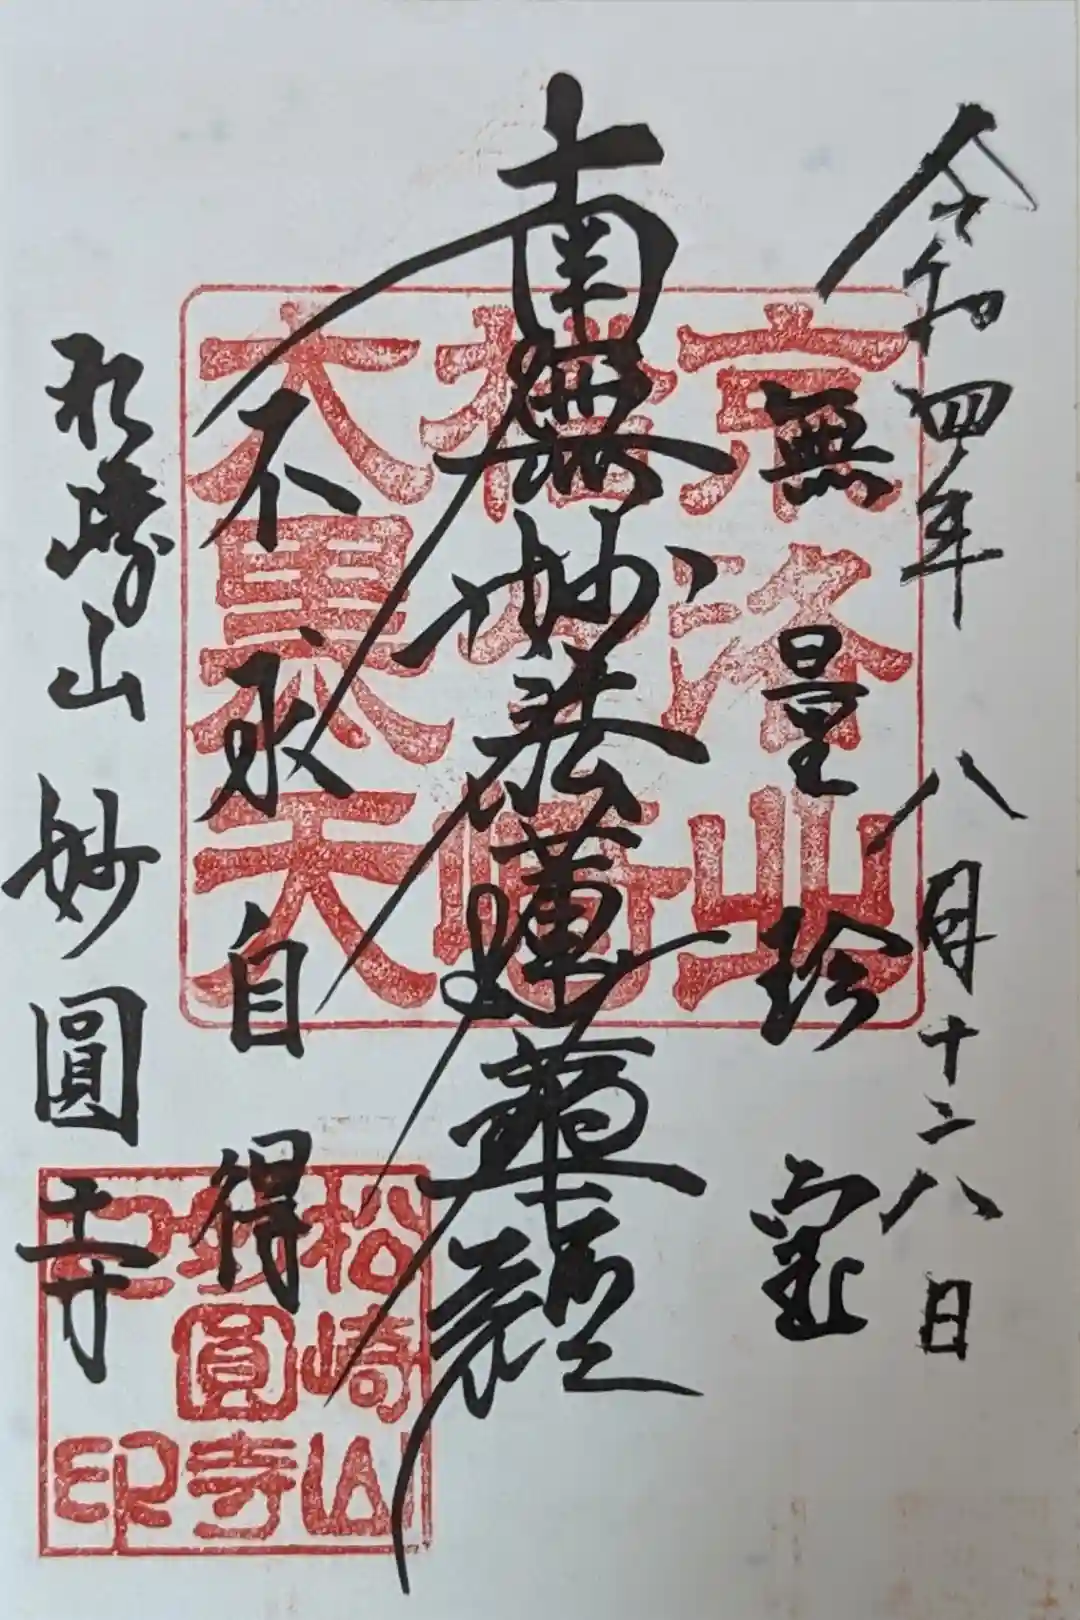 令和四年 八月十二八日
無量珍寳
南無妙法蓮華經
不求自得
松崎山 妙圓寺
京洛北
松ヶ崎
大黒天
松崎山
妙圓寺
之印